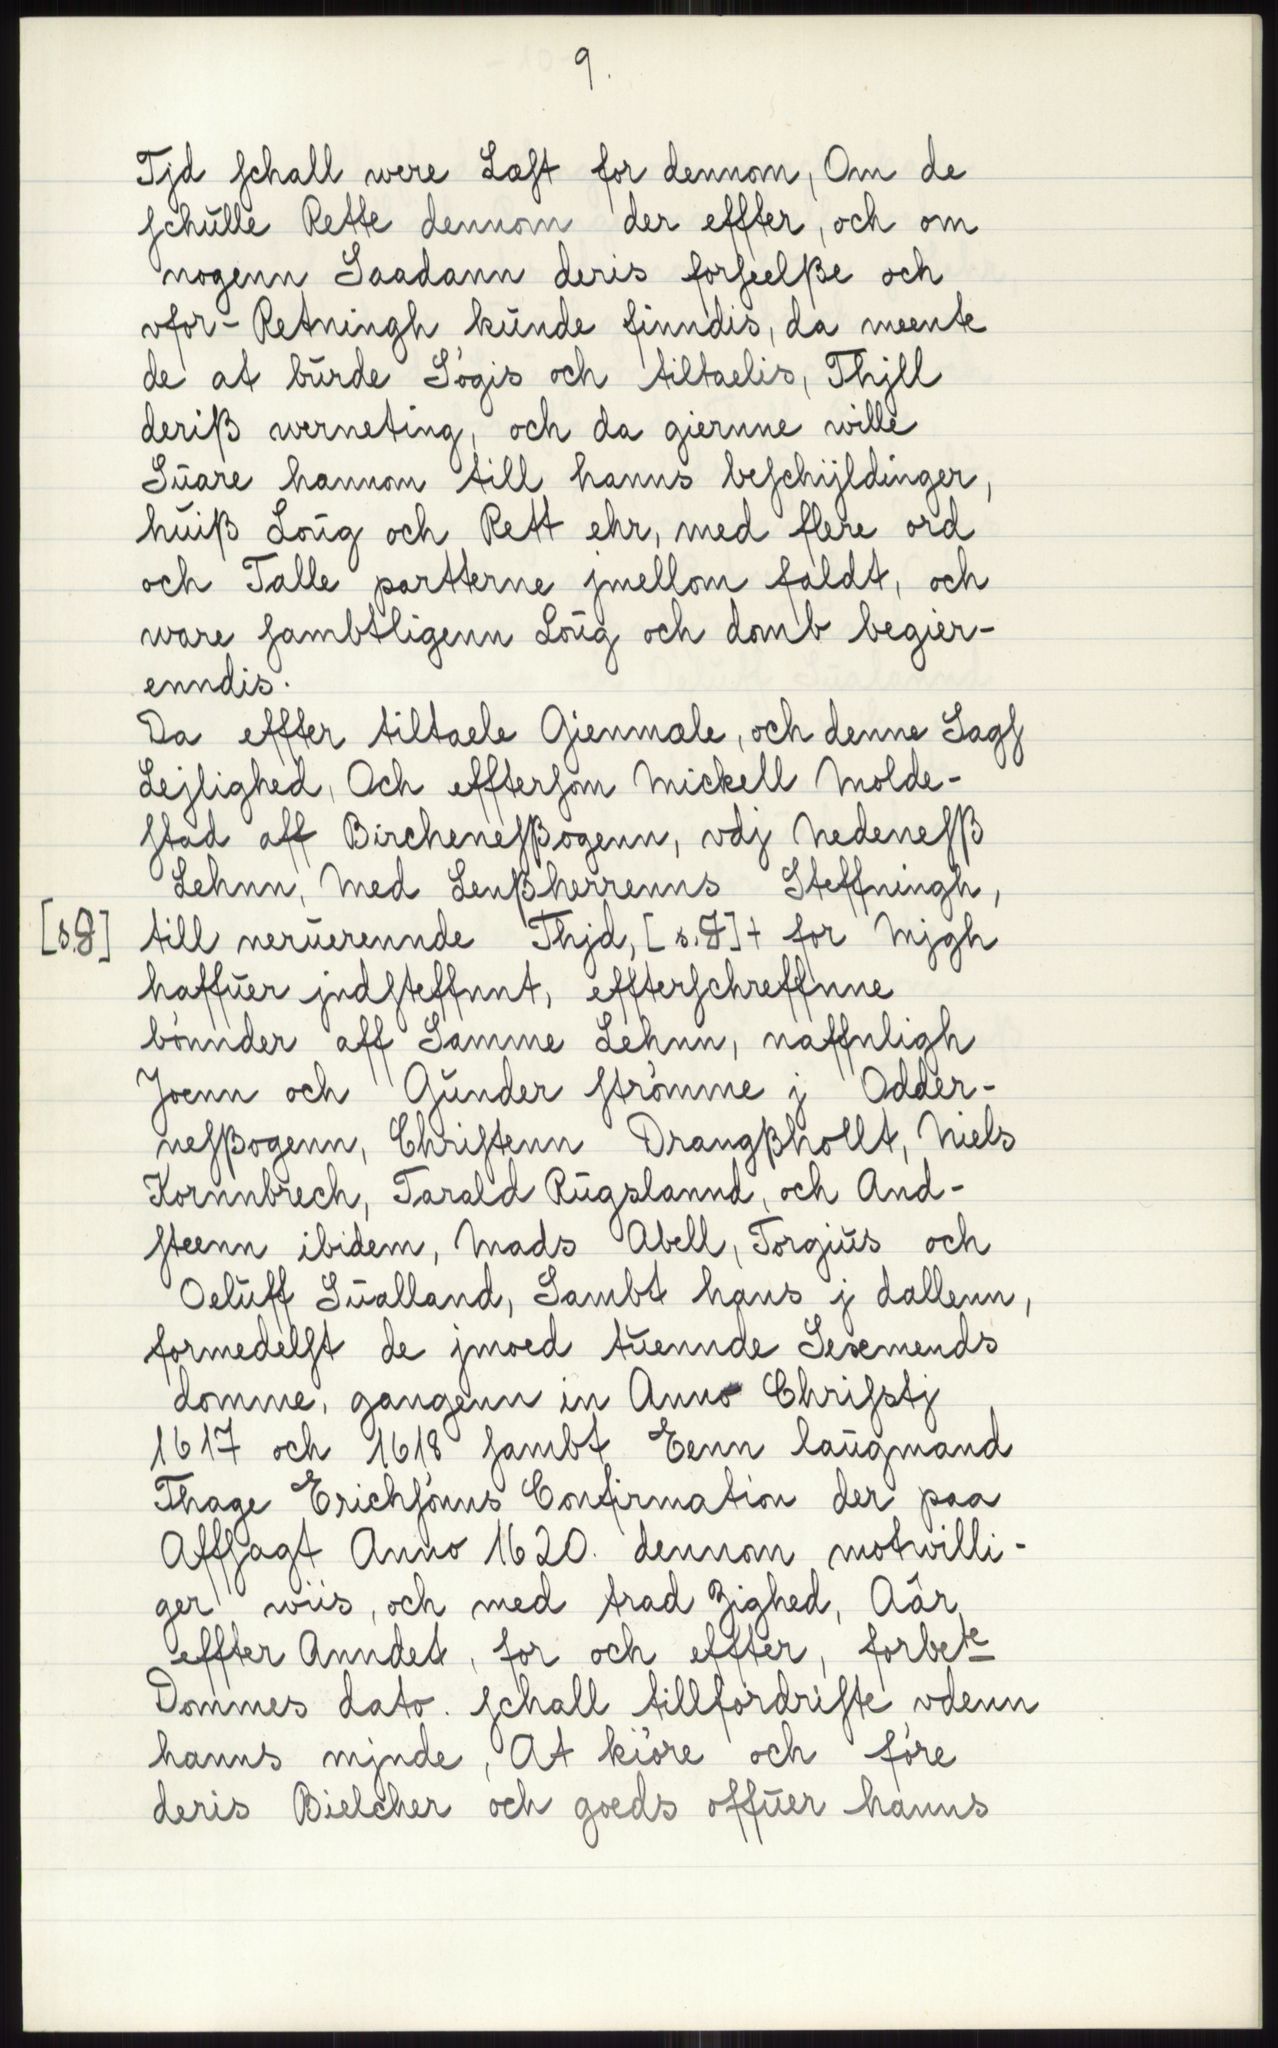 9.
Tjd schall were Læst for dennom, Om de
schůlle Rette dennom der effter, och om
nogenn Saadann deris forseelße och
vfor-Retningh kůnde finndis, da meente
de at bůrde Sógis och tiltaelis, Thjll
deriß werneting, och da giernne wille
Sůare hannom till hanns beschÿldinger,
hůiß Loůg och Rett ehr, med flere ord
och Talle partterne jmellom faldt, och
ware sambtligenn Loůg och domb begier-
enndis.
Da effter tiltaele Gienmæle, och denne Sags
Lejlighed, Och efftersom Mickell Molde-
stad aff Birchenesßogenn, vdj Nedenesß
Lehnn, Med Lenßherrenns Steffningh,
[s.J] till nerůerennde Thjd, [s.J]+ for Mjgh
haffůer jndsteffnnt, effterschreffnne
bónnder aff Samme Lehnn, naffnligh
Joenn och Gůnder strómme j Odder-
nesßogenn, Christenn Drangßhollt, Niels
Kornnbrech, Tarald Růgslannd, och And-
steenn ibidem, Mads Abell, Torgiůs och
Oelůff Sůalland, Sambt hans j dallenn,
formedelst de jmoed tůennde Sexmends
domme, gangenn in Anno Christj
1617 och 1618 sambt Eenn laůgmand
Thage Erichsónns Confirmation der paa
Affsagt Anno 1620. dennom motwilli-
ger wiis, och med trad Zighed, Aår
effter Anndet, for och effter, forbete
Dommes dato. schall tillfordriste vdenn
hanns mjnde, At kióre och fóre
deris Bielcher och goeds offůer hanns